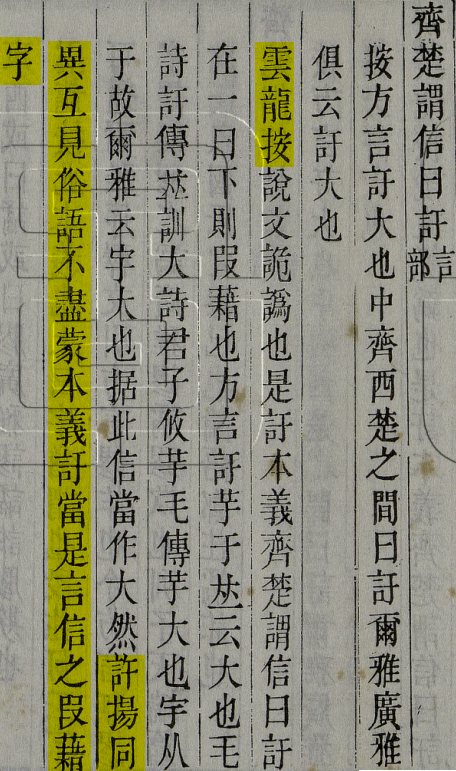 齊楚謂信曰訏言部
按方言訏大也中齊西楚之間曰訏爾雅廣雅
俱云訏大也
雲龍按說文詭譌也是訏本義齊楚謂信曰訏
在一曰下則叚藉也方言訏芋于𠀤云大也毛
詩訏傳𠀤訓大詩君子攸芋毛傳芋大也宇从
于故爾雅云宇大也据此信當作大然許揚同
異互見俗語不盡蒙本義訏當是言信之叚藉
字